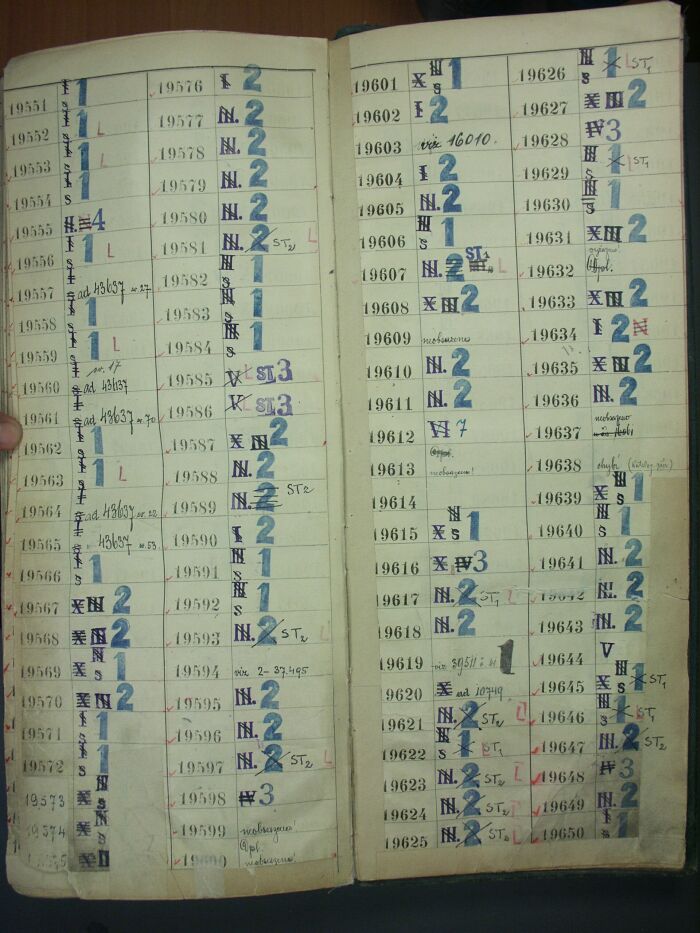 19551 I s 1
19552 I s 1 L
19553 I s 1 L
19554 I s 1
19555 4
19556 I s 1 L
19557 ad 43637 nr. 27
19558 I s 1
19559 I s 1 L
19560 nr. 17 ad 43637
19561 s ad 43637 nr. 70
19562 I s 1
19563 I s 1 L
19564 s ad 43637 nr. 22
19565 s 43637 nr. 53
19566 I s 1
19567 X III 2
19568 X III 2
19569 X s 1
19570 X III 2
19571 I s 1
19572 I s 1
19573 X s
19574 X s
X
19576 I 2
19577 N. 2
19578 N. 2
19579 N. 2
19580 N. 2
19581 N. 2 ST2 L
19582 s 1
19583 s 1
19584 s 1
19585 V L ST.3
19586 V L ST.3
19587 X III 2
19588 N. 2
19589 N. 2 ST2
19590 I 2
19591 s 1
19592 s 1
19593 N. 2 ST2 L
19594 viz 2-37.495
19595 N. 2
19596 N. 2
19597 N. 2 ST2 L
19598 IV 3
19599 neobsazeno!
neobsazeno!
19601 X s 1
19602 I 2
19603 viz 16010.
19604 I 2
19605 N. 2
19606 s 1
19607 N. 2 ST1 L
19608 X III 2
19609 neobsazeno
19610 N. 2
19611 N. 2
19612 VI 7
19613 neobsazeno!
19614
19615 X s 1
19616 X IV 3
19617 N. 2 ST1 L
19618 N. 2
19619 viz 1
19620 X ad 10749
19621 N. 2 ST2 L
19622 s ST1 L
19623 N. 2 ST2 L
19624 N. 2 ST2
19625 N. 2 ST2 L
19626 s 1 X L ST1
19627 X III 2
19628 IV 3
19629 s 1 X L ST1
19630 s 1
19631 X III 2
19632
19633 X III 2
19634 I 2 N
19635 X III 2
19636 N. 2
19637 neobsazeno
19638 chybí
19639 X s 1
19640 s 1
19641 N. 2
19642 N. 2
19643 N. 2
19644 V
19645 X s 1 ST1
19646 s 1 L ST1
19647 N. 2 ST2
19648 IV 3
19649 N. 2
19650 s 1